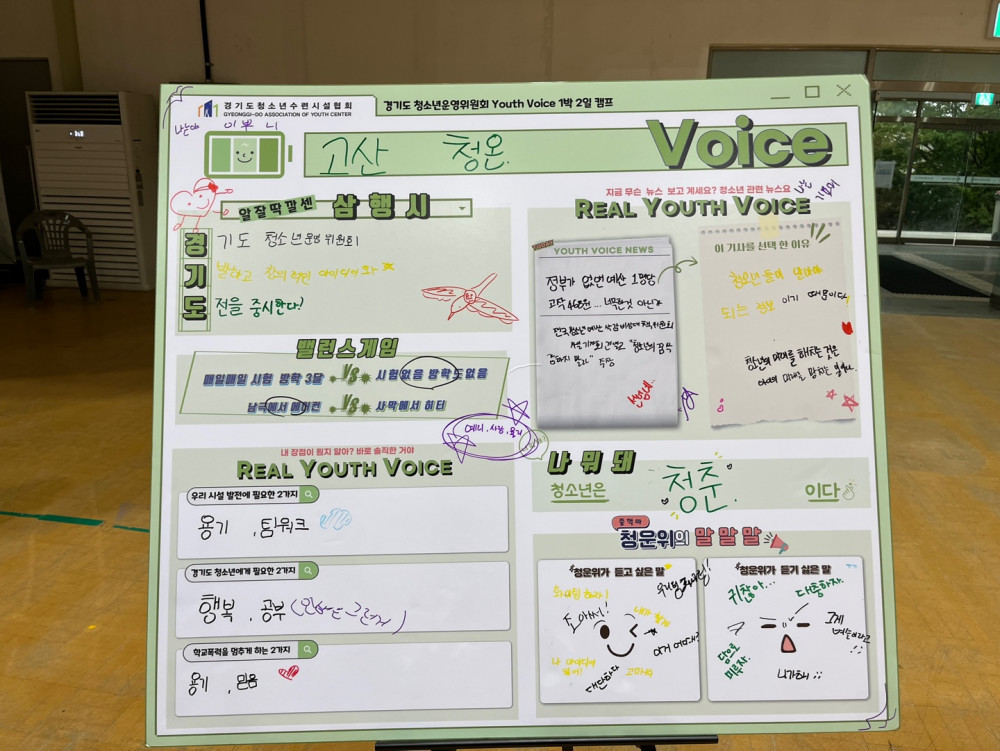 경기도청소년수련시설협회
GYEONGGI-DO ASSOCIATION OF YOUTH CENTER
경기도 청소년운영위원회 Youth Voice 1박 2일 캠프
나는야
이쁘니
고산 청온.
Voice
알잘딱깔센 삼행시
경 기도 청소년운영위원회
기 발하고 창의적인 아이디어와
도 전을 중시한다!
밸런스게임
매일매일 시험 방학 3달 VS 시험없음 방학도없음
남극에서 에어컨 VS 사막에서 히터
지금 무슨 뉴스 보고 계세요? 청소년 관련 뉴스요
나는
REAL YOUTH VOICE
TODAY
YOUTH VOICE NEWS
정부가 없앤 예산 1명당
고작 468원... 너무한것 아닌가
전국청소년예산 삭감 비상대책위원회
"청소년의 꿈을
주장
이 기사를 선택 한 이유
청소년들이 알아야
되는 정보 이기 때문이다
청소년의 미래를 해치는 것은
예니, 사랑, 윤지
내 장점이 뭔지 알아? 바로 솔직한 거야
REAL YOUTH VOICE
우리 시설 발전에 필요한 2가지
용기, 팀워크
경기도 청소년에게 필요한 2가지
행복, 공부
학교폭력을 멈추게 하는 2가지
용기, 믿음
나 뭐 돼
청소년은 청춘. 이다
중꺽마
청운위의 말 말 말
청운위가 듣고 싶은 말
도와줘!
내가 할게
이거 어때?
나 아이디어 있어!
고마워
대단하다
청운위가 듣기 싫은 말
귀찮아...
대충하자.
그게 뭐야
담으로
미루자.
니가해;;